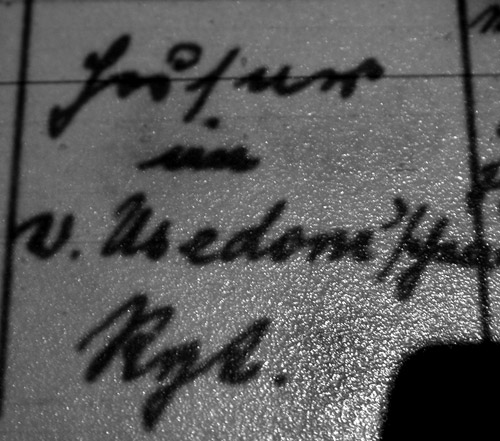 Husar
im
v. Usedom'schen
Rgt.